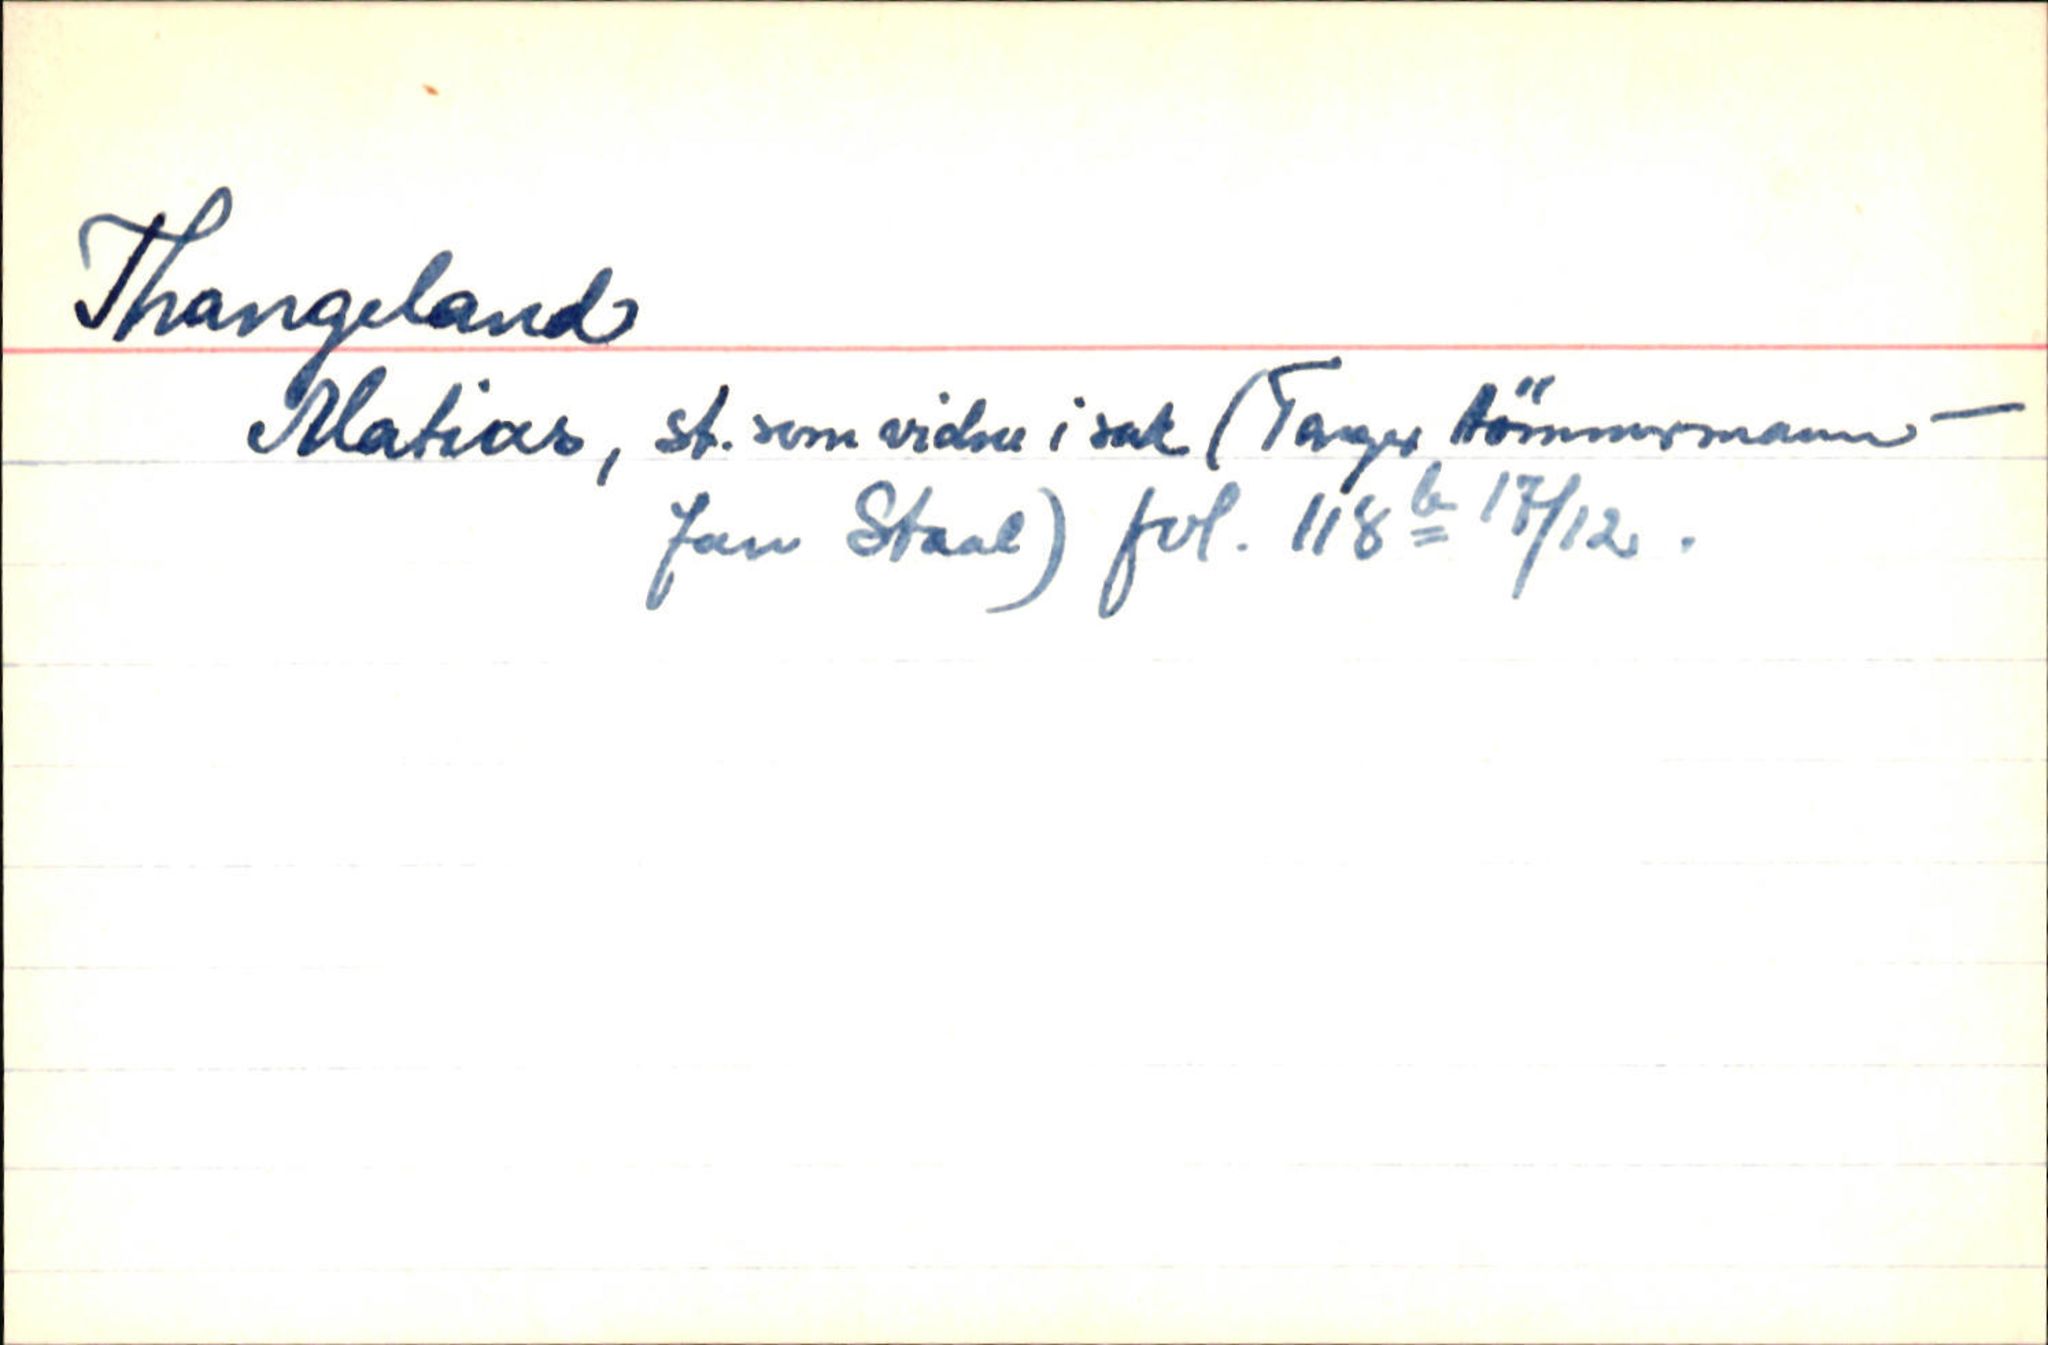 Thangeland
Matias, st. som vidne i sak (Torger tömmermann –
Jan Staal) fol. 118 b 17/12.